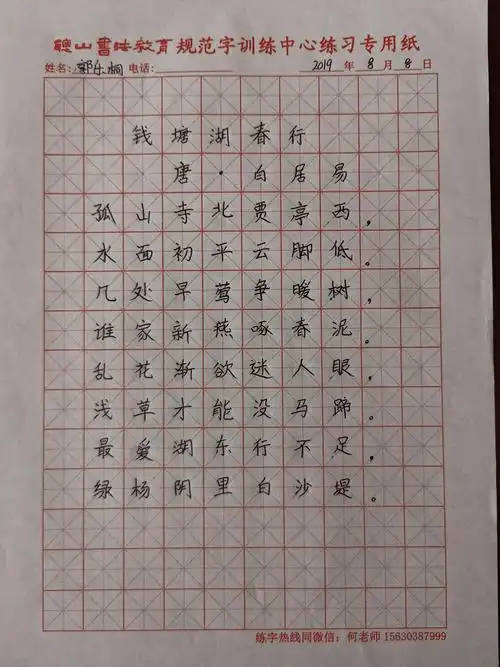 聪山書法教育规范字训练中心练习专用纸
姓名: 郭乐桐 电话: 2019 年 8 月 8 日
钱塘湖春行
唐·白居易
孤山寺北贾亭西，
水面初平云脚低。
几处早莺争暖树，
谁家新燕啄春泥。
乱花渐欲迷人眼，
浅草才能没马蹄。
最爱湖东行不足，
绿杨阴里白沙堤。
练字热线同微信：何老师 15630387999